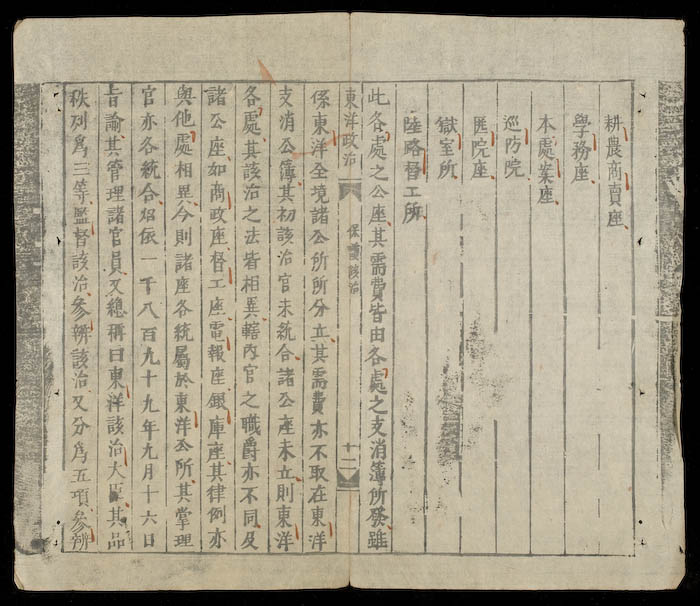 耕農商賣座
學務座
本處案座
巡防院
匿院座
獄室所
陸路督工所
此各處之公座其需費皆由各處之支消簿所發雖
東洋政治 保護該治 十二
係東洋全境諸公所所分立其需費亦不取在東洋
支消公簿其初該治官未統合諸公座未立則東洋
各處其該治之法皆相異轄內官之職爵亦不同及
諸公座如商政座督工座電報座銀庫座其律例亦
與他處相異今則諸座各統屬於東洋公所其掌理
官亦各統合焰依一千八百九十九年九月十六日
旨諭其管理諸官員又總稱曰東洋該治大臣其品
秩列爲三等監督該治參辨該治又分爲五項參辨